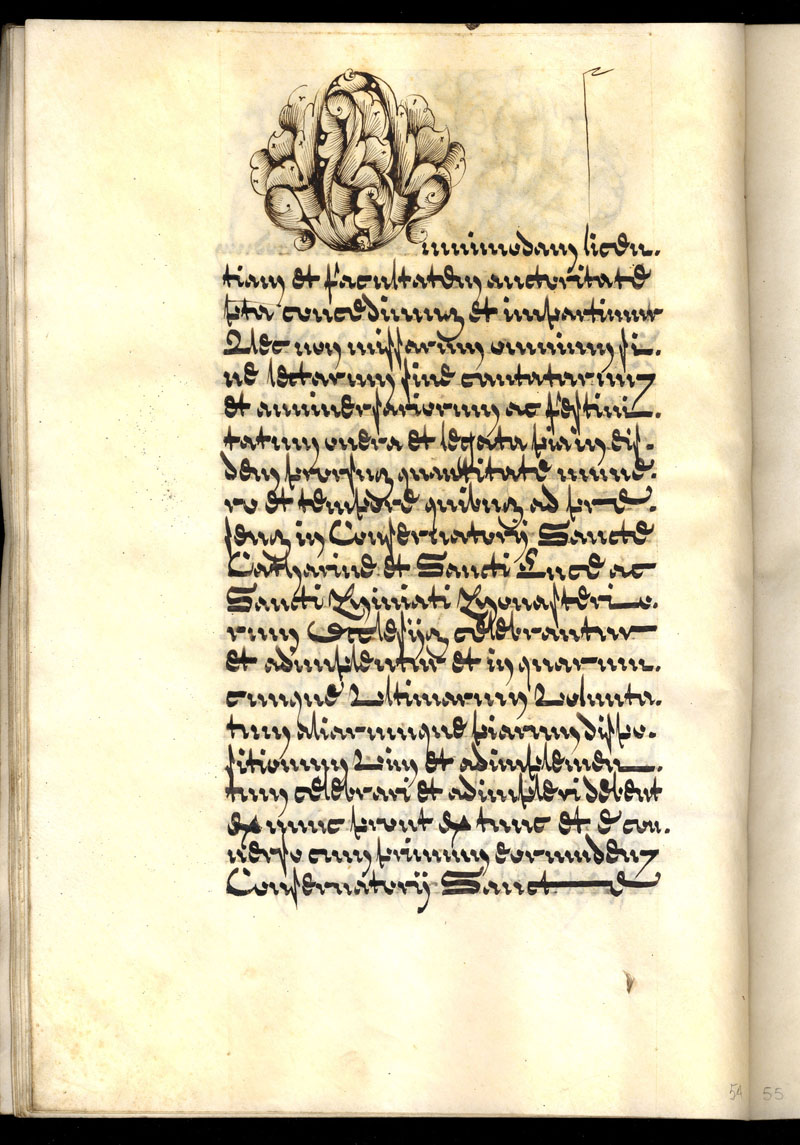 Omnimodam licen.
tiam et facultatem auctoritate
pta concedimus et impartimur
Nec non missarum omnium si.
ve lectarum sive cantatarum
et anniversariorum ac festivi.
tatum onera et legata piam eis.
dem prorsus quantitate nume.
ro et tempore quibus ad pre.
sens in Conservatorij Sancte
Catharine et Sancti Luce ac
Sancti Miniati Monasterio.
rum Ecclesijs celebrantur
et adimplentur et in quarum.
cunque Ultimarum Volunta.
tum aliarumque piarum dispo.
sitionum Vim et adimplemen.
tum celebrari et adimpleri debent
ex nunc prout ex tunc et e con.
verso cum primum eorumdem
Conservatorij Sancte
54 55